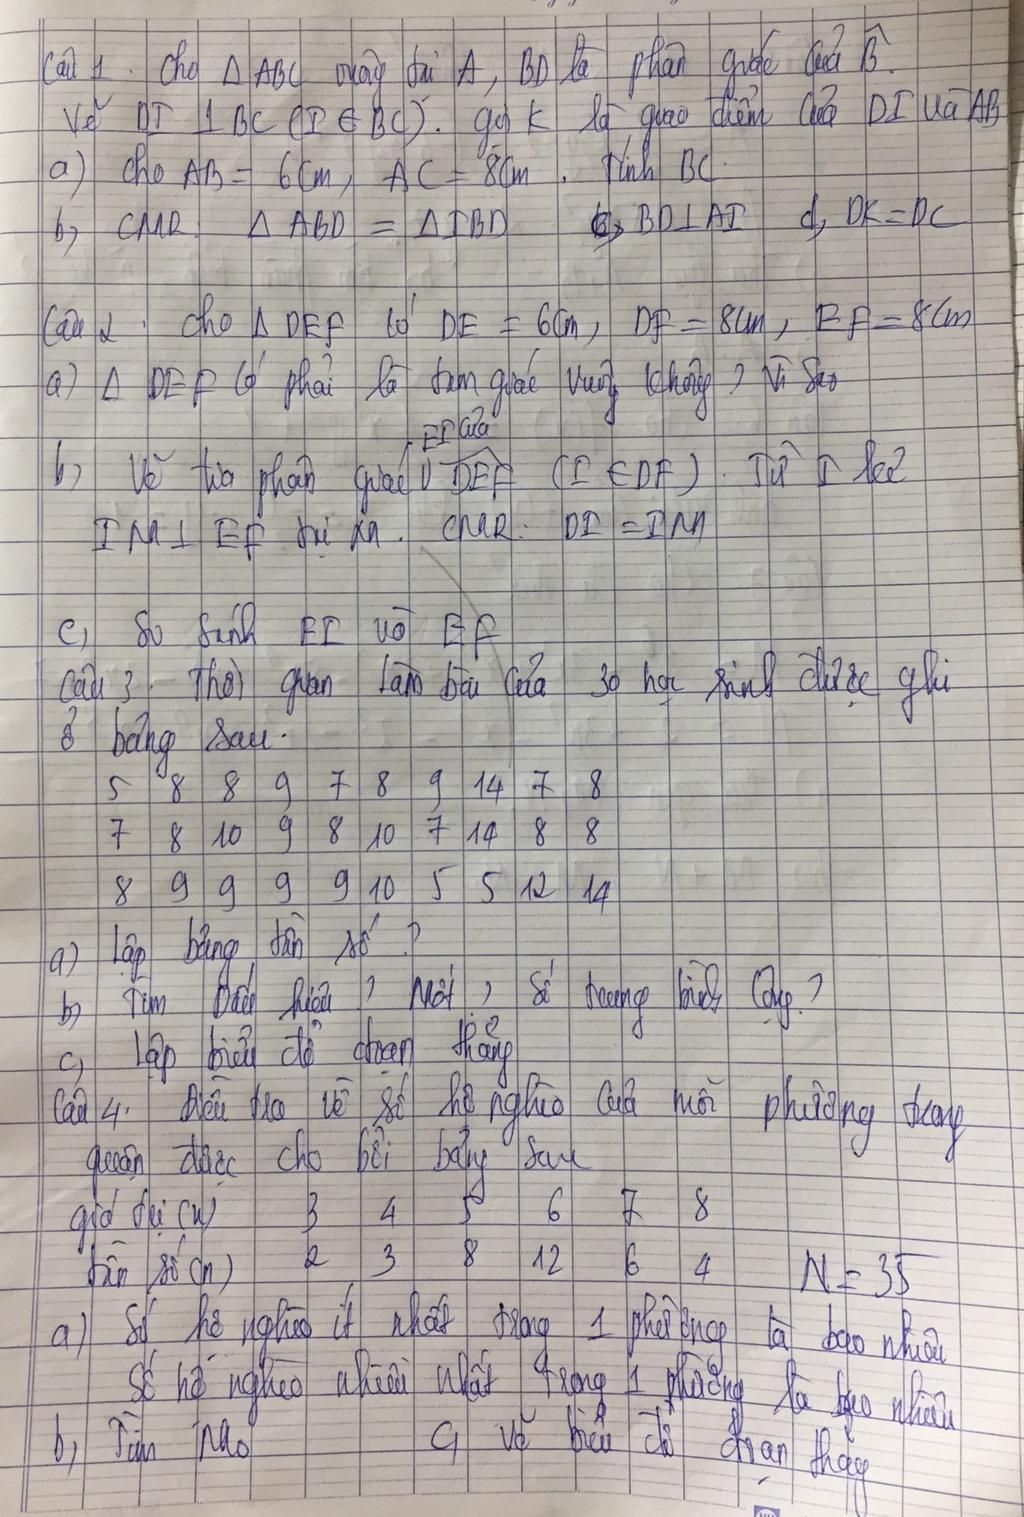 Câu 1. Cho Δ ABC vuông tại A, BD là phân giác của B̂.
Vẽ DI ⊥ BC (I ∈ BC). gọi K là giao điểm của DI và AB
a) Cho AB = 6Cm, AC = 8Cm. Tính BC.
b, CMR: Δ ABD = Δ IBD c, BD ⊥ AI d, DK = DC
Câu 2. Cho Δ DEF có DE = 6Cm, DF = 8Cm, EF = 8Cm
a) Δ DEF có phải là tam giác vuông không? Vì sao
b, Vẽ tia phân giác EI của DEF (I ∈ DF). Từ I kẻ
IM ⊥ EF tại M. CMR: DI = IM
c, So sánh EI và EF
Câu 3. Thời gian làm bài của 30 học sinh được ghi
ở bảng sau.
5 8 8 9 7 8 9 14 7 8
7 8 10 9 8 10 7 14 8 8
8 9 9 9 9 10 5 5 12 14
a) Lập bảng tần số?
b, Tìm Dấu hiệu? Mốt, số trung bình cộng?
c, Lập biểu đồ đoạn thẳng
Câu 4. Điều tra về số hộ nghèo của mỗi phường trong
quận được cho bởi bảng sau
giá trị (x) 3 4 5 6 7 8
tần số (n) 2 3 8 12 6 4 N = 35
a) Số hộ nghèo ít nhất trong 1 phường là bao nhiêu
Số hộ nghèo nhiều nhất trong 1 phường là bao nhiêu
b, Tìm c, vẽ biểu đồ đoạn thẳng